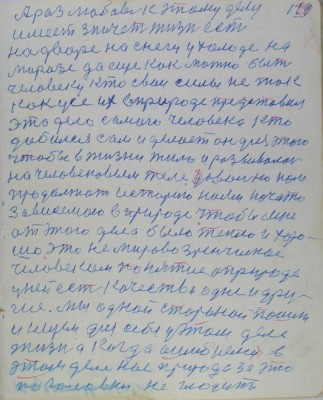 А раз любовь к этому делу 179
имеет значет жизн ест
на дворе на снегу и холоде на
морозе да еще как можно быт
человеку кто свои силы не так
как усе их в природе представил
это дело самого человека кто
добился сам и делает он для этого
чтобы в жизни жило и развивалос
на человековом теле
продолжат историю нами начато
Зависимою в природе чтобы мне
от этого дела было тепло и хоро-
шо. это не мировоззренческое
человеком понятие о природе
у ней ест качества одне и дру-
гие. мы одной стороной пошли
и ищем для себя у этом деле
жизн а когда в
этом деле нас природа за это
по головки не гладит